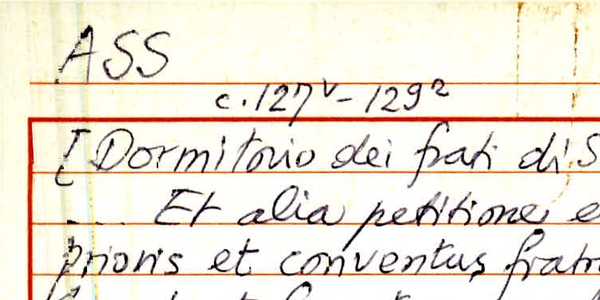 ASS
c. 127v - 129r
[Dormitorio dei frati di S
.... Et alia petitione e
prioris et conventus fratr